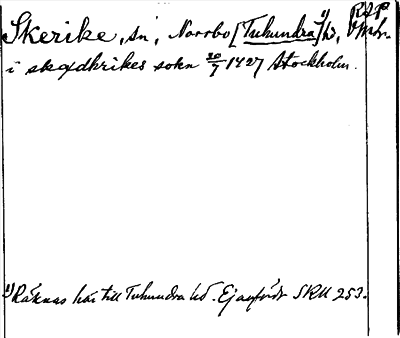 Skerike, sn, Norrbo [Tuhundra]¹⁾ hd, Vmls. RAP
i skædhrikes sokn 20/7 1427 Stockholm.
¹⁾ Räknas här till Tuhundra hd. Ej anförd SRU 253.